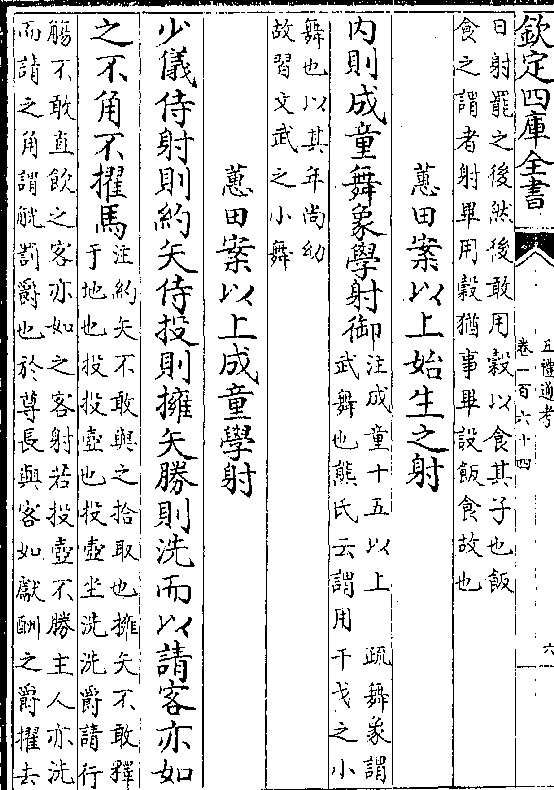 欽定四庫全書
五禮通考
卷一百六十四
六
曰射罷之後然後敢用穀以食其子也飯
食之謂者射畢用穀猶事畢設飯食故也
蕙田案以上始生之射
內則成童舞象學射御
注成童十五以上 疏舞象謂
武舞也熊氏云謂用干戈之小
舞也以其年尚幼
故習文武之小舞
蕙田案以上成童學射
少儀侍射則約矢侍投則擁矢勝則洗而以請客亦如
之不角不擢馬
注約矢不敢與之拾取也擁矢不敢釋
于地也投投壺也投壺坐洗洗爵請行
觴不敢直飲之客亦如之客射若投壺不勝主人亦洗
而請之角謂觥罰爵也於尊長與客如獻酬之爵擢去